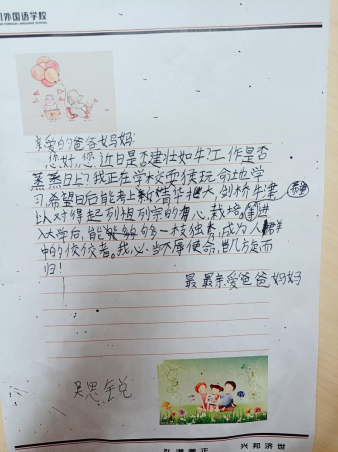 外国语学校
亲爱的爸爸妈妈:
您好,您近日是否建壮如牛?工作是否
蒸蒸日上?我正在学校耍猴玩命地学
习,希望日后能考上清华北大剑桥牛津
以对得起列祖列宗的有心栽培。进
入大学后,能够一枝独秀,成为人群
中的佼佼者。我必当不辱使命,凯旋而
归!
最最亲爱爸爸妈妈
吴思
兴邦济世